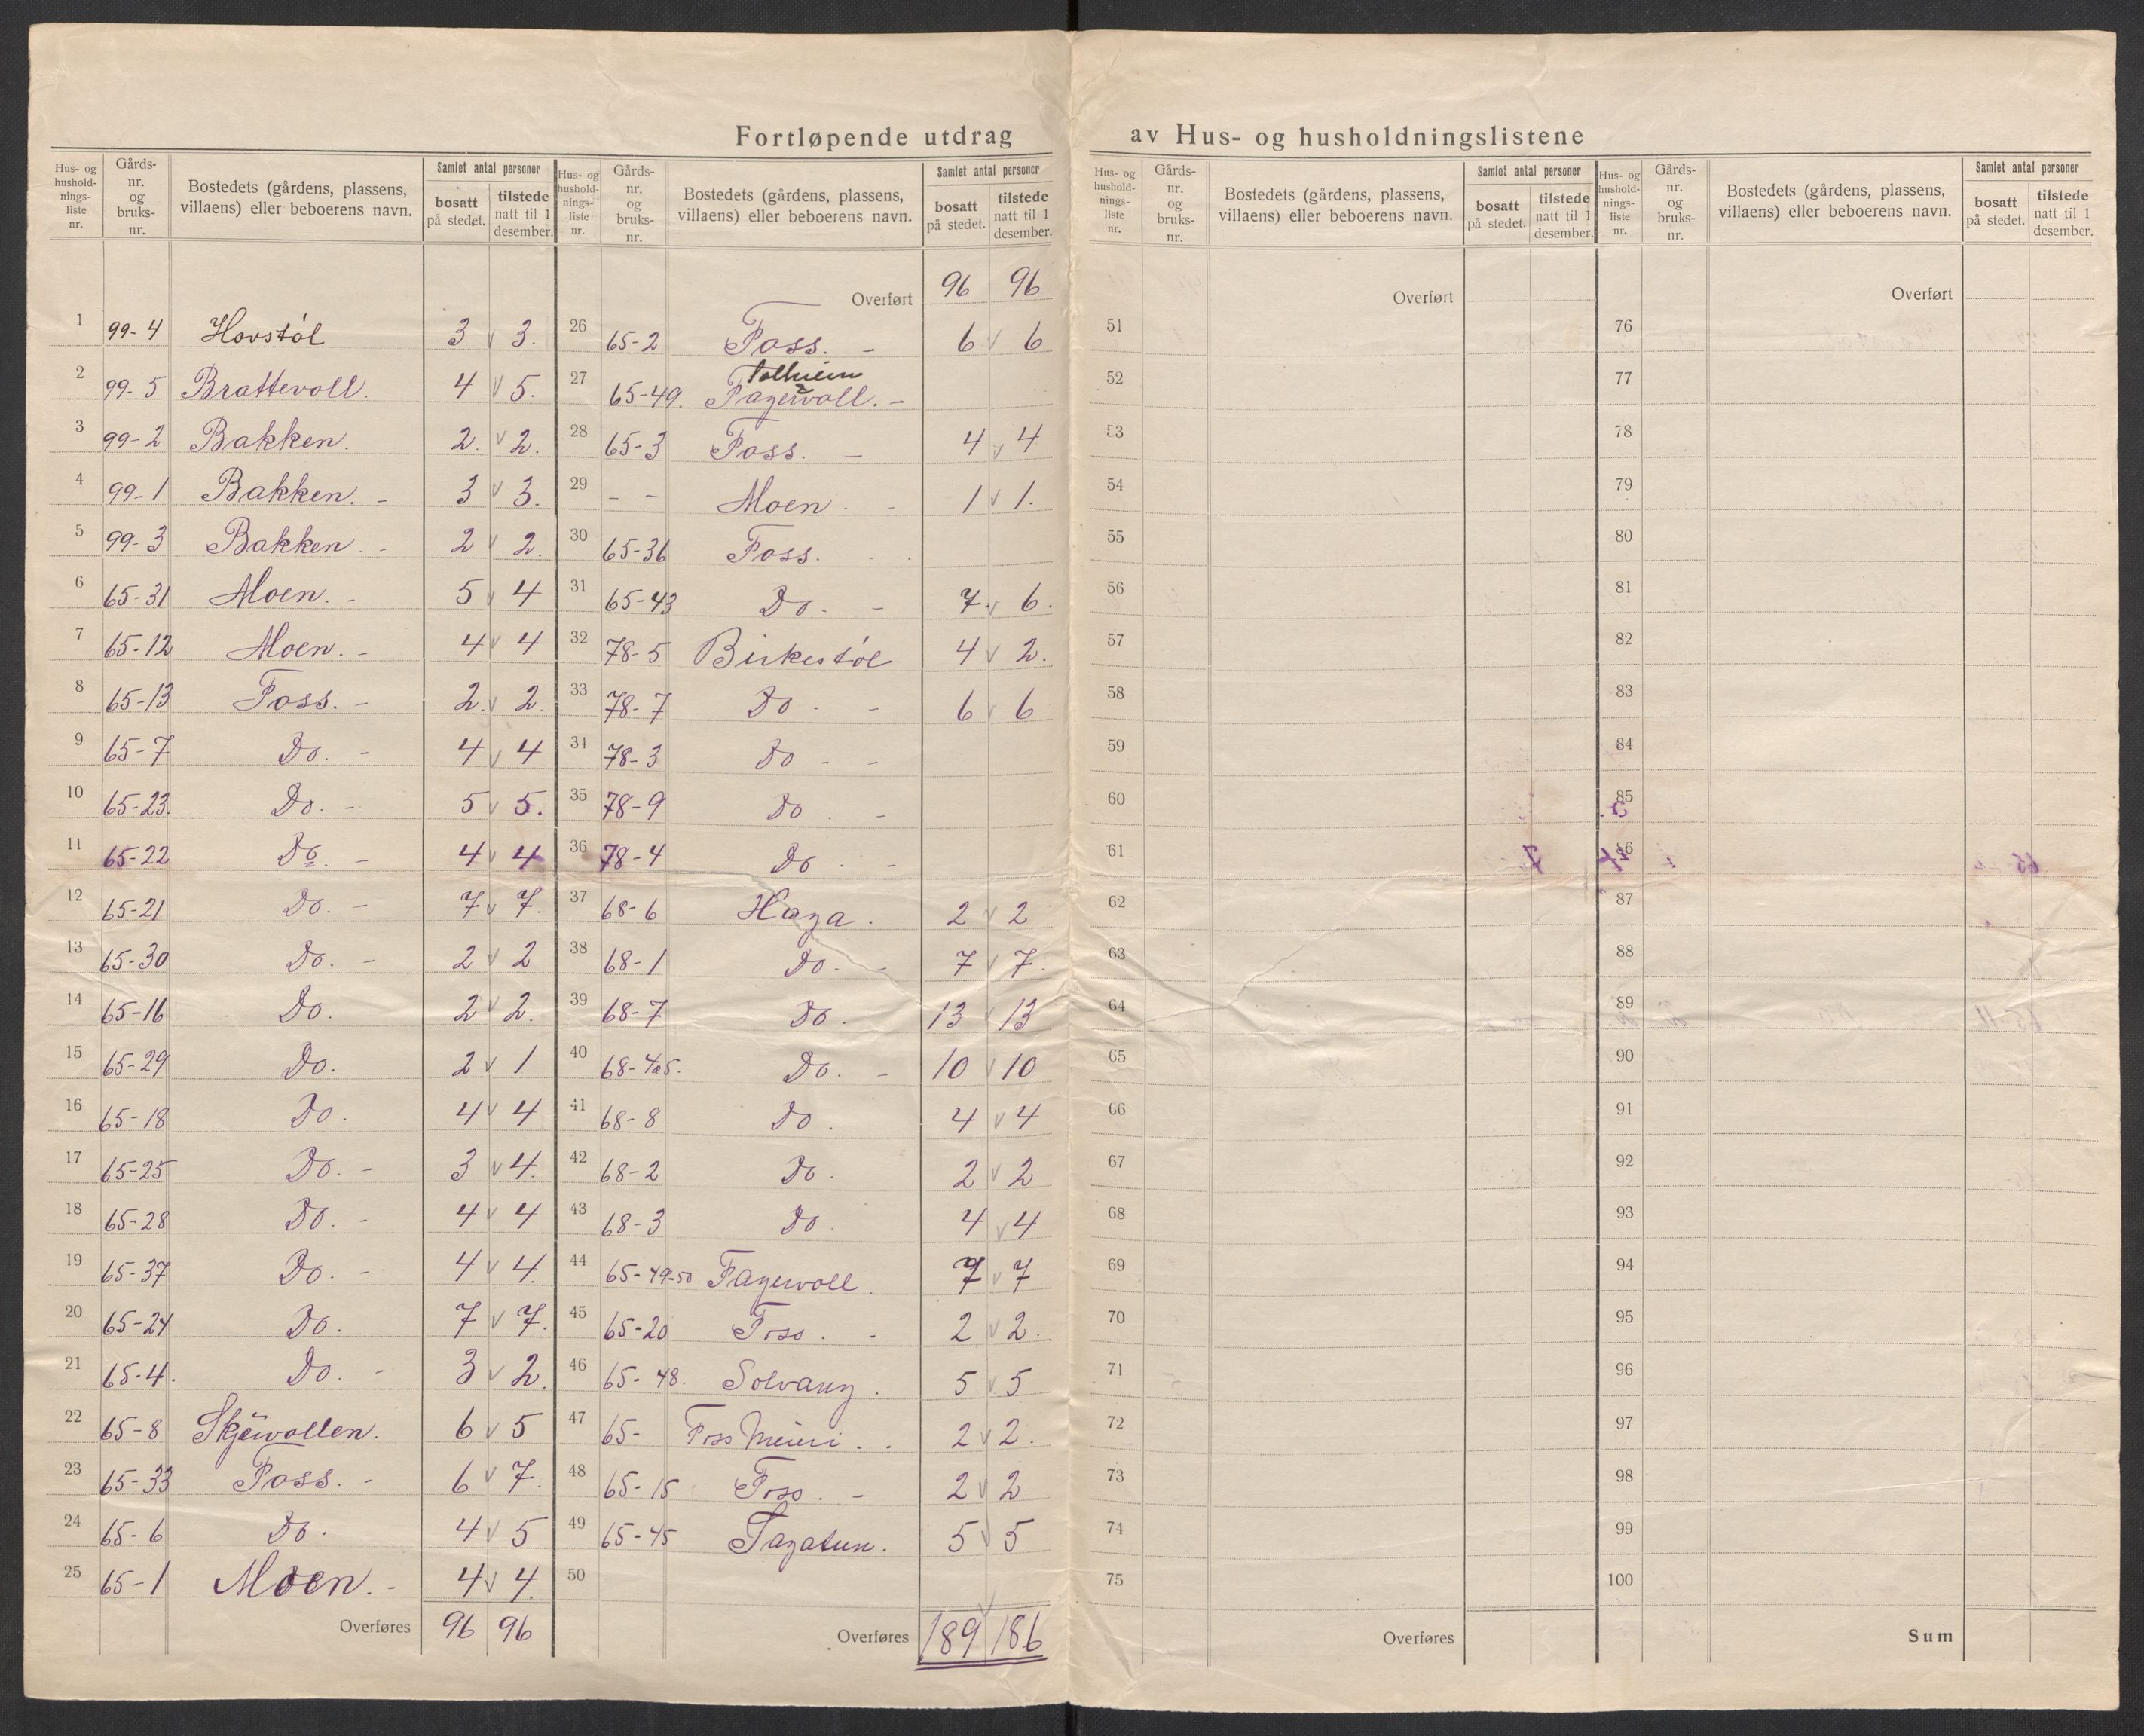 Fortløpende utdrag av Hus- og husholdningslistene
Hus- og hushold-nings-liste nr. Gårds-nr. og bruks-nr. Bostedets (gårdens, plassens, villaens) eller beboerens navn. Samlet antal personer bosatt på stedet. tilstede natt til 1 desember.
1 99-4 Hovstøl 3 v 3.
2 99-5 Brattevoll. 4 v 5.
3 99-2 Bakken. 2. v 2.
4 99-1 Bakken. - 3 v 3.
5 99-3 Bakken. - 2 v 2.
6 65-31 Moen. - 5 v 4
7 65-12 Moen. - 4 v 4
8 65-13 Foss. - 2. v 2.
9 65-7 Do. - 4 v 4
10 65-23. Do. - 5 v 5.
11 65-22 Do. - 4 v 4
12 65-21 Do. - 7 v 7.
13 65-30 Do. - 2 v 2
14 65-16 Do. 2 v 2.
15 65-29 Do. 2 v 1
16 65-18 Do. 4 v 4
17 65-25 Do. - 3 v 4.
18 65-28 Do. - 4 v 4
19 65-37 Do. - 4 v 4.
20 65-24 Do. 7 v 7.
21 65-4. Do. - 3 v 2.
22 65-8 Skjevollen. 6 v 5
23 65-33 Foss. - 6 v 7.
24 65-6 Do. 4 v 5
25 65-1 Moen. - 4 v 4.
Overføres 96 96
Hus- og hushold-nings-liste nr. Gårds-nr. og bruks-nr. Bostedets (gårdens, plassens, villaens) eller beboerens navn. Samlet antal personer bosatt på stedet. tilstede natt til 1 desember.
Overført 96 96
26 65-2 Foss. - 6 v 6
27 65-49. Fagervoll. -
28 65-3 Foss. - 4 v 4
29 - - Moen. - 1 v 1.
30 65-36 Foss. - .
31 65-43 Do. - 7 v 6.
32 78-5 Birkestøl 4 v 2.
33 78-7 Do. - 6 v 6
34 78-3 Do - -
35 78-9 Do . -
36 78-4 Do . -
37 68-6 Haga. 2 v 2
38 68-1 Do. - 7 v 7.
39 68-7 Do. 13 v 13
40 68-4o5. Do. - 10 v 10
41 68-8 Do. 4 v 4
42 68-2 Do. 2 v 2
43 68-3 Do. 4 v 4
44 65-49-50 Fagervoll. 7 v 7
45 65-20 Foss. - 2 v 2.
46 65-48. Solvang. 5 v 5
47 65- Foss Meieri. . 2 v 2.
48 65-15 Foss. - 2 v 2
49 65-45 Fagatun. 5 v 5
50
Overføres 189 186
Hus- og hushold-nings-liste nr. Gårds-nr. og bruks-nr. Bostedets (gårdens, plassens, villaens) eller beboerens navn. Samlet antal personer bosatt på stedet. tilstede natt til 1 desember.
Overført
51
52
53
54
55
56
57
58
59
60
61
62
63
64
65
66
67
68
69
70
71
72
73
74
75
Overføres
Hus- og hushold-nings-liste nr. Gårds-nr. og bruks-nr. Bostedets (gårdens, plassens, villaens) eller beboerens navn. Samlet antal personer bosatt på stedet. tilstede natt til 1 desember.
Overført
76
77
78
79
80
81
82
83
84
85
86
87
88
89
90
91
92
93
94
95
96
97
98
99
100
Sum